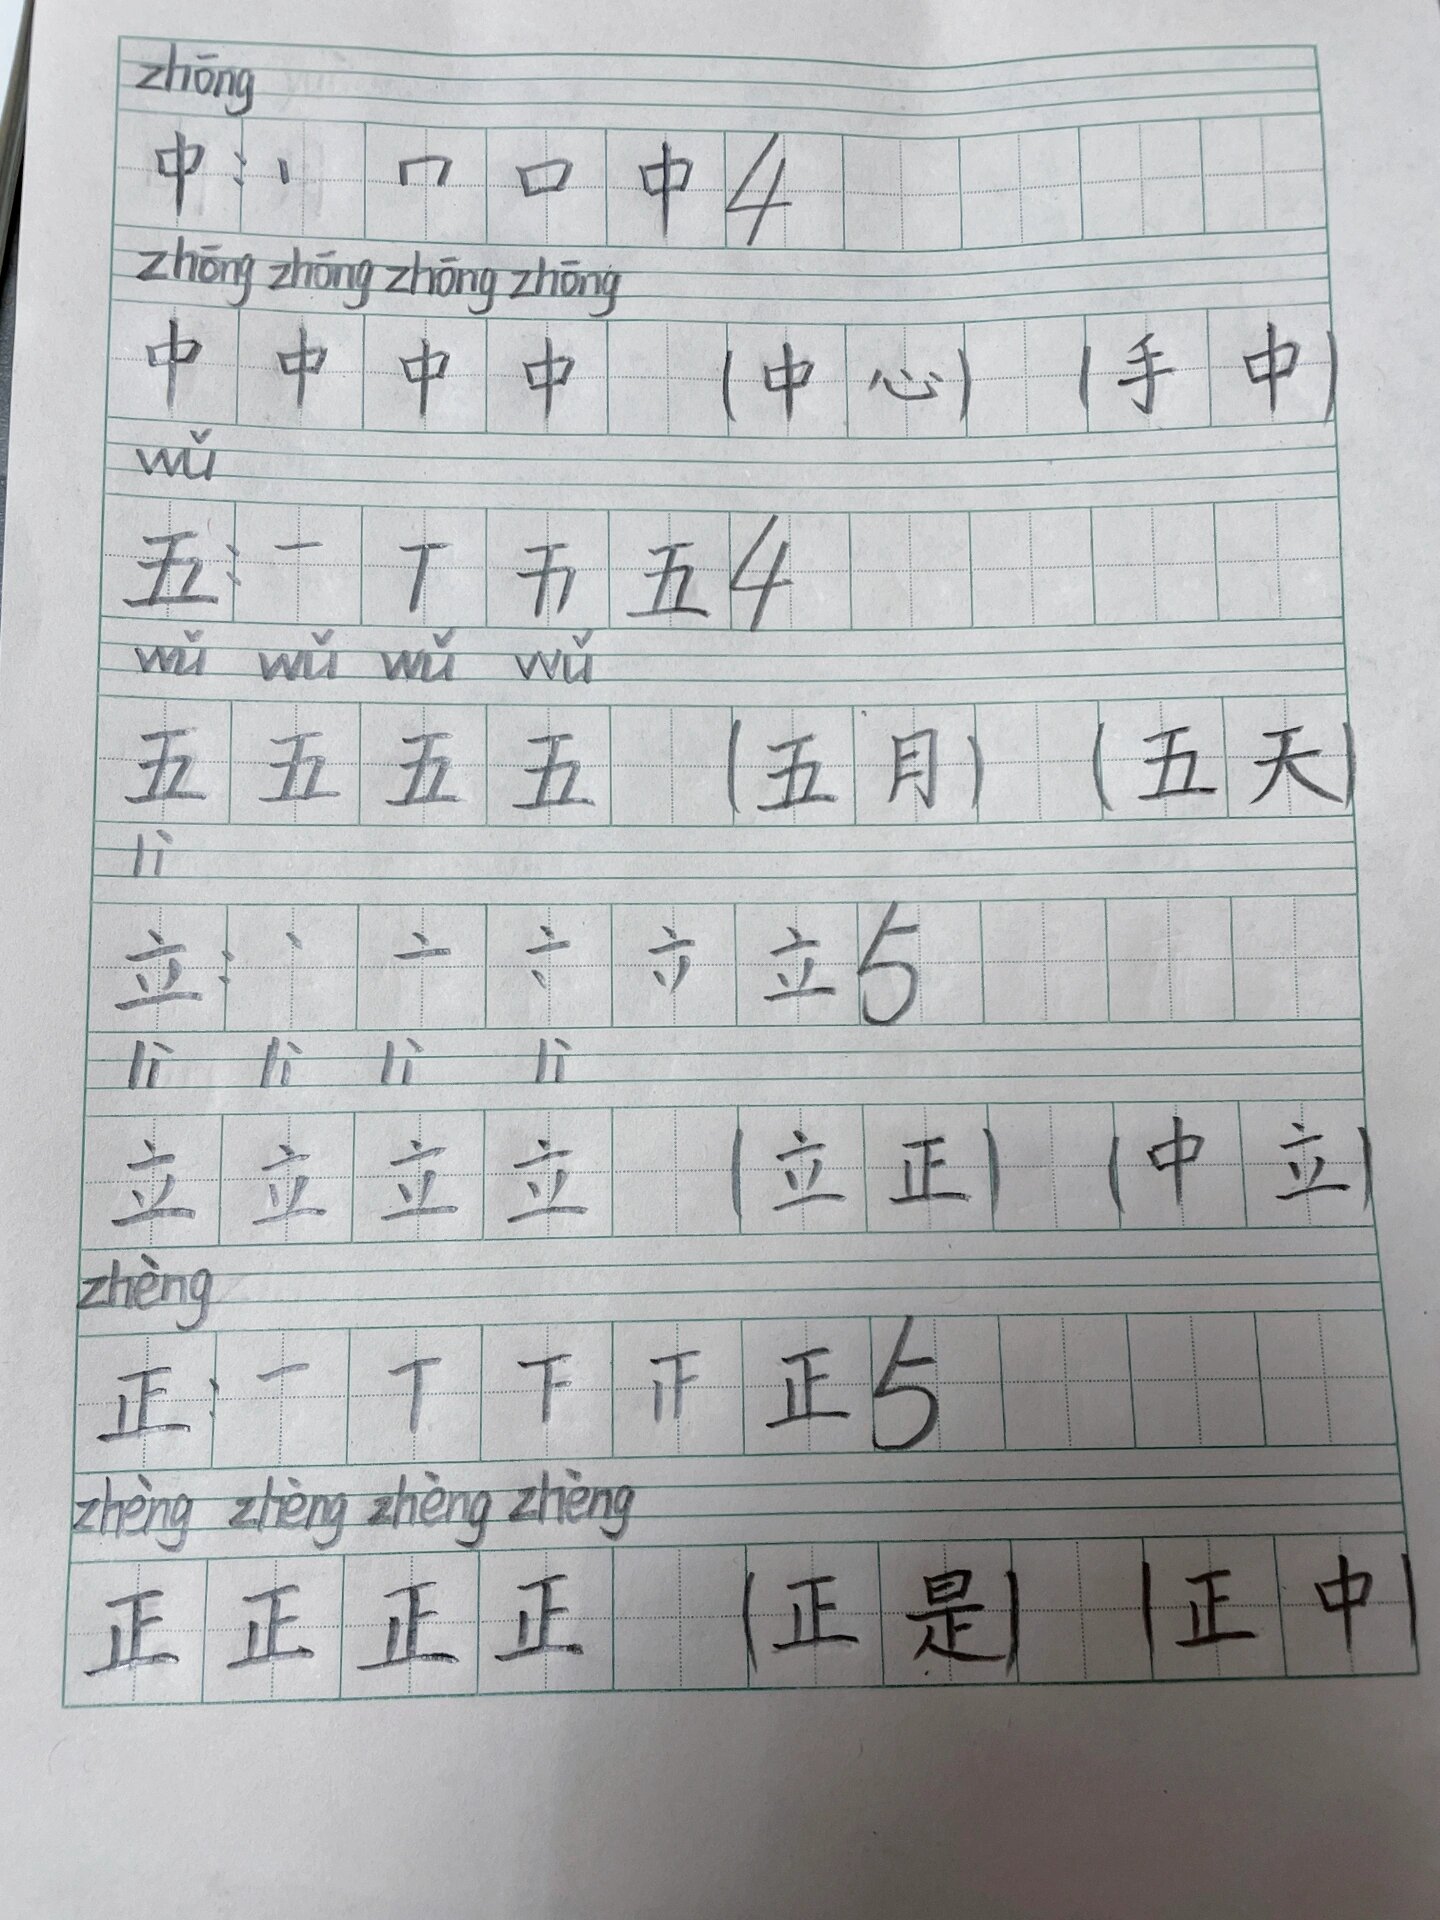 zhōng
中：丨 𠃍 口 中 4
zhōng zhōng zhōng zhōng
中 中 中 中 （中心） （手中）
wǔ
五：一 丅 五 4
wǔ wǔ wǔ wǔ
五 五 五 五 （五月） （五天）
lì
立：丶 亠 立 5
lì lì lì lì
立 立 立 立 （立正） （中立）
zhèng
正：一 丅 下 正 5
zhèng zhèng zhèng zhèng
正 正 正 正 （正是） （正中）